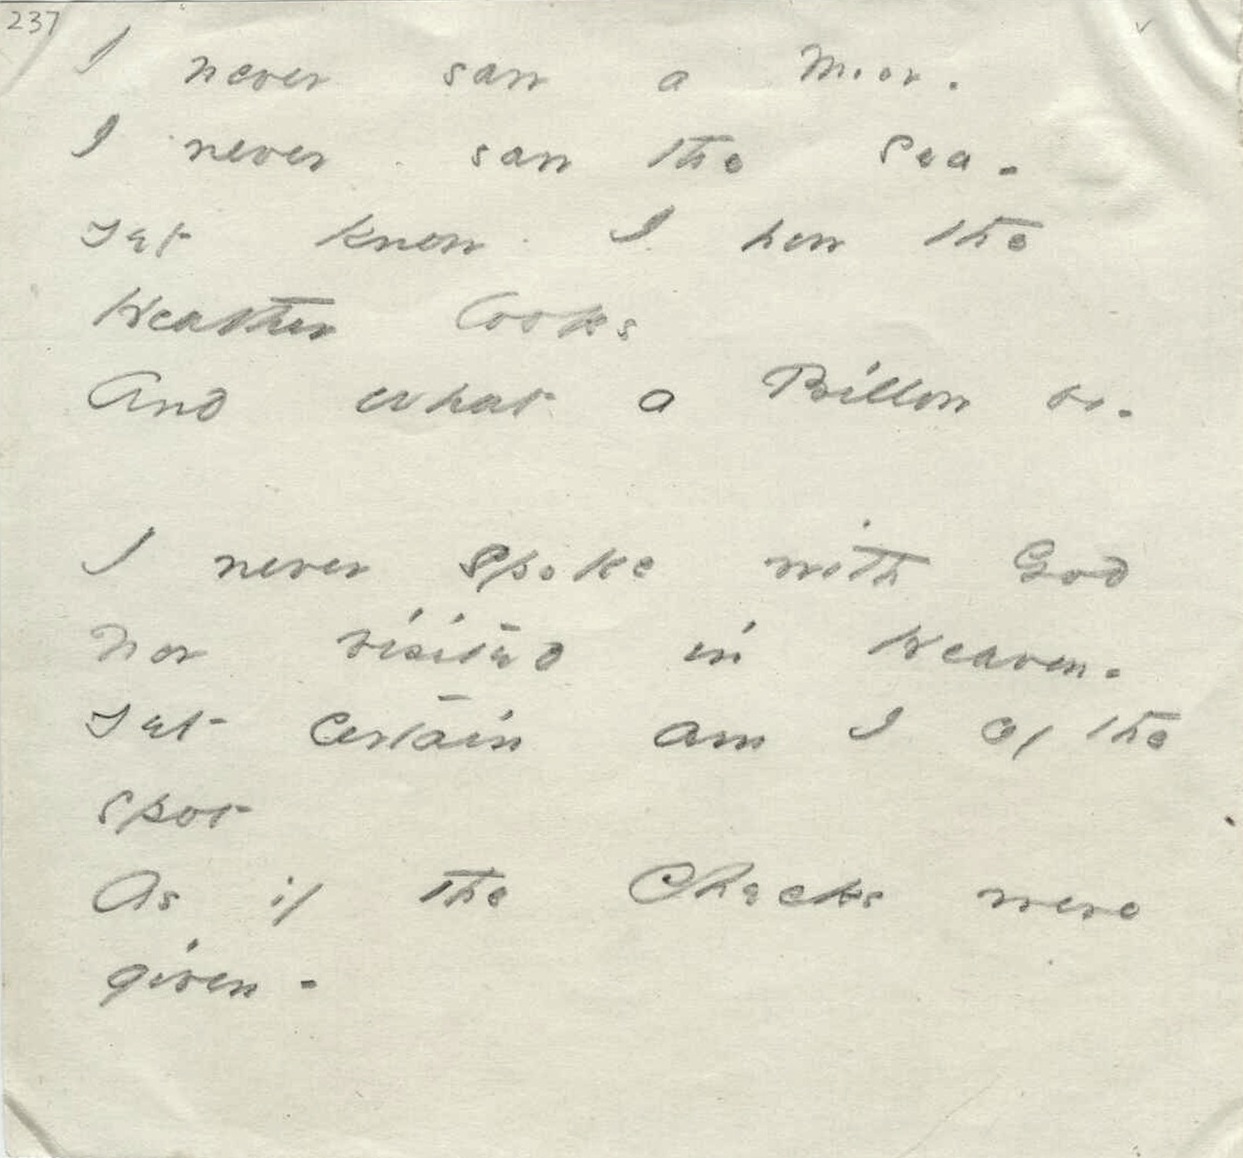 237
I never saw a Moor.
I never saw the Sea -
Yet know I how the
Heather looks
And what a Billow be -
I never spoke with God
Nor visited in Heaven -
Yet certain am I of the
spot
As if the Checks were
given -